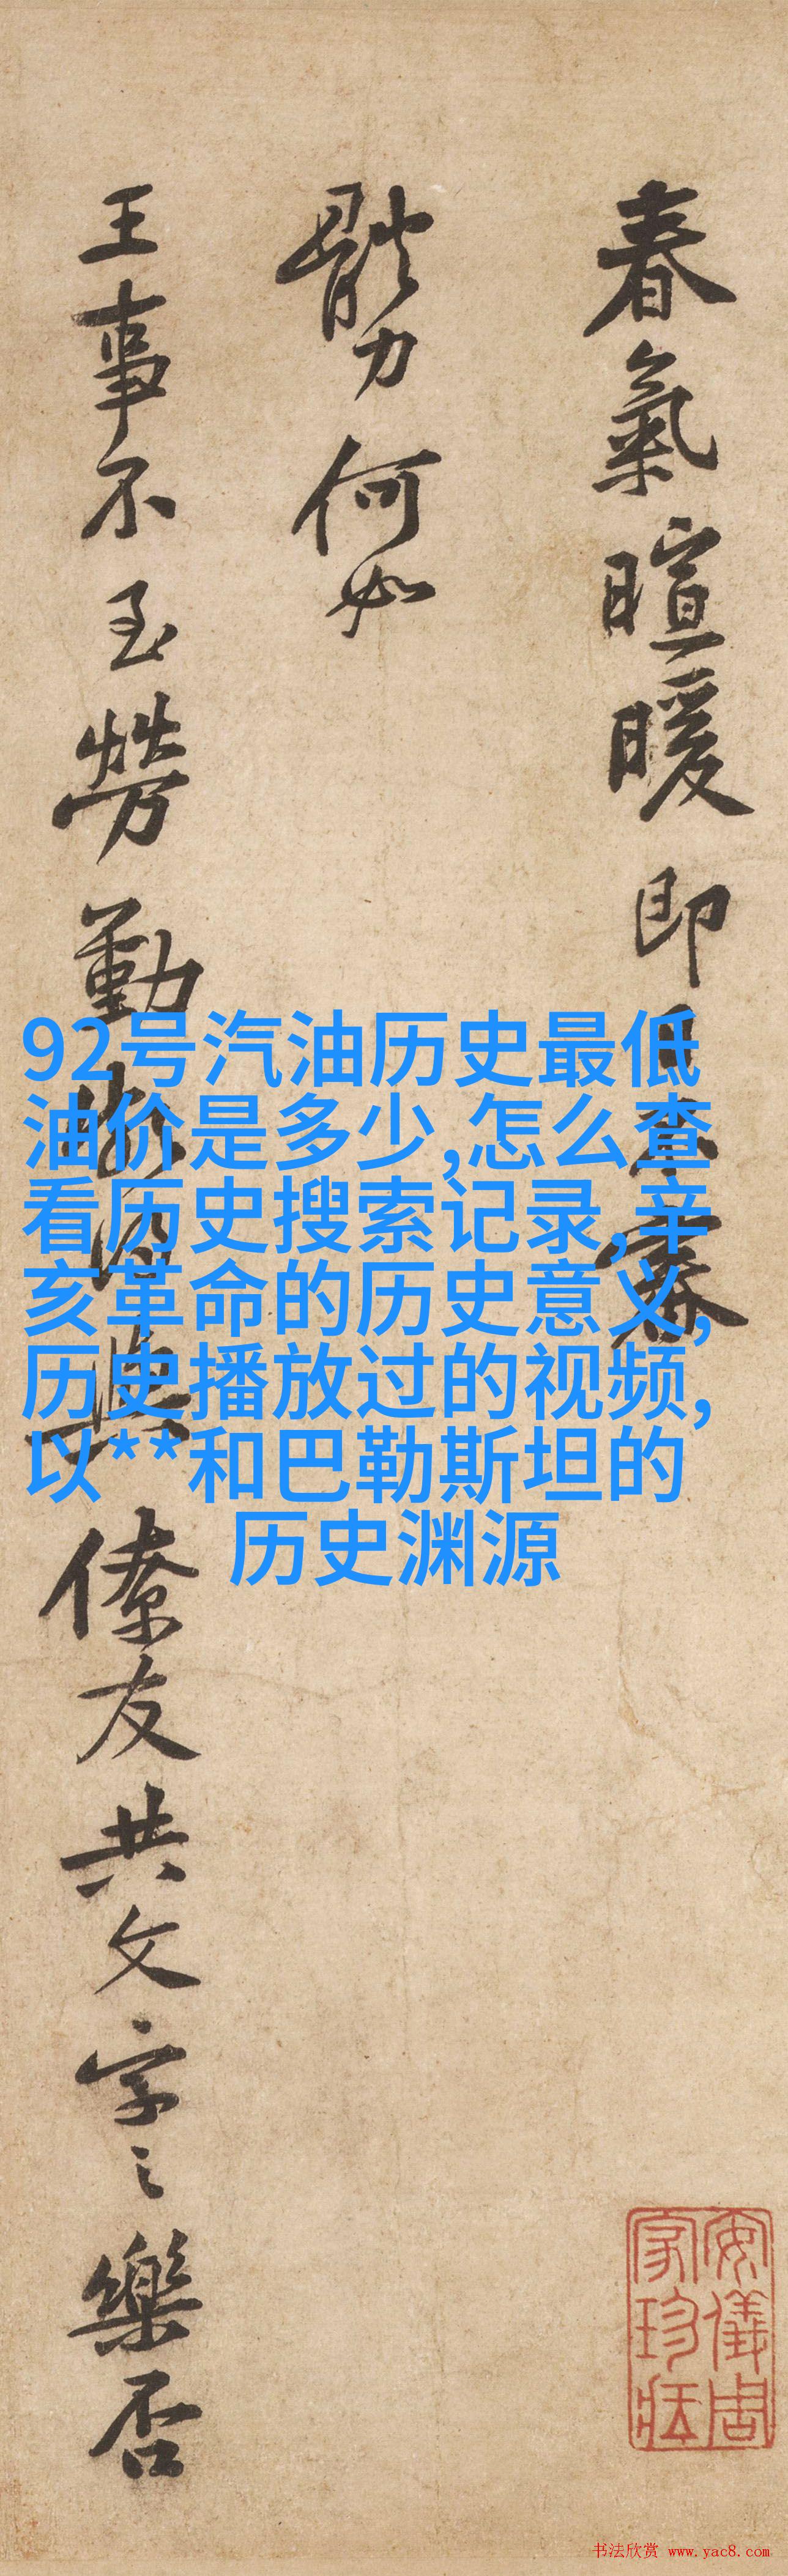 春氣暄暖即日不審
體力何如
王事不至勞勤
僚友共文字之樂否
92号汽油历史最低
油价是多少,怎么查
看历史搜索记录,辛
亥革命的历史意义,
历史播放过的视频,
以**和巴勒斯坦的
历史渊源
安儀周
家珍藏
书法欣赏 www.yac8.com